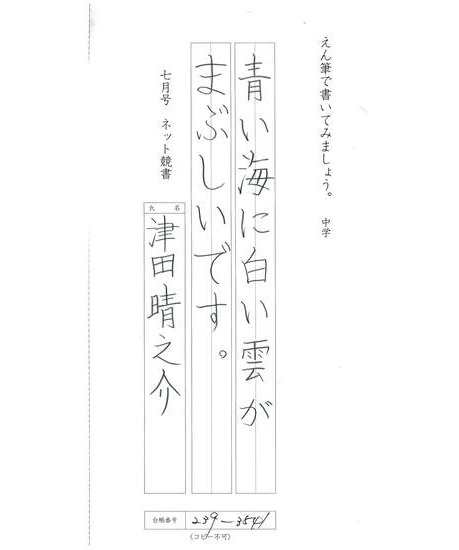 えん筆で書いてみましょう。 中学
青い海に白い雲が
まぶしいです。
七月号 ネット競書
氏 名
津田晴之介
台帳番号 239-3541
(コピー不可)